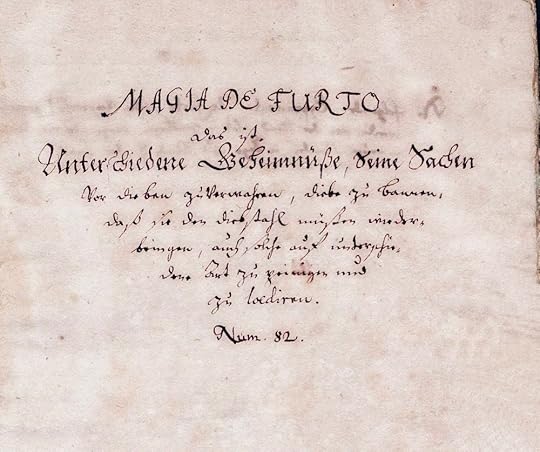 MAGIA DE FURTO
das ist
Unterschiedene Geheimnüße, Seine Sachen
Vor dieben zuverwahren, diebe zu bannen,
daß sie den diebstahl müßen wieder-
bringen, auch solche auf unterschie-
dene Art zu peinigen und
zu laediren.
Num. 82.